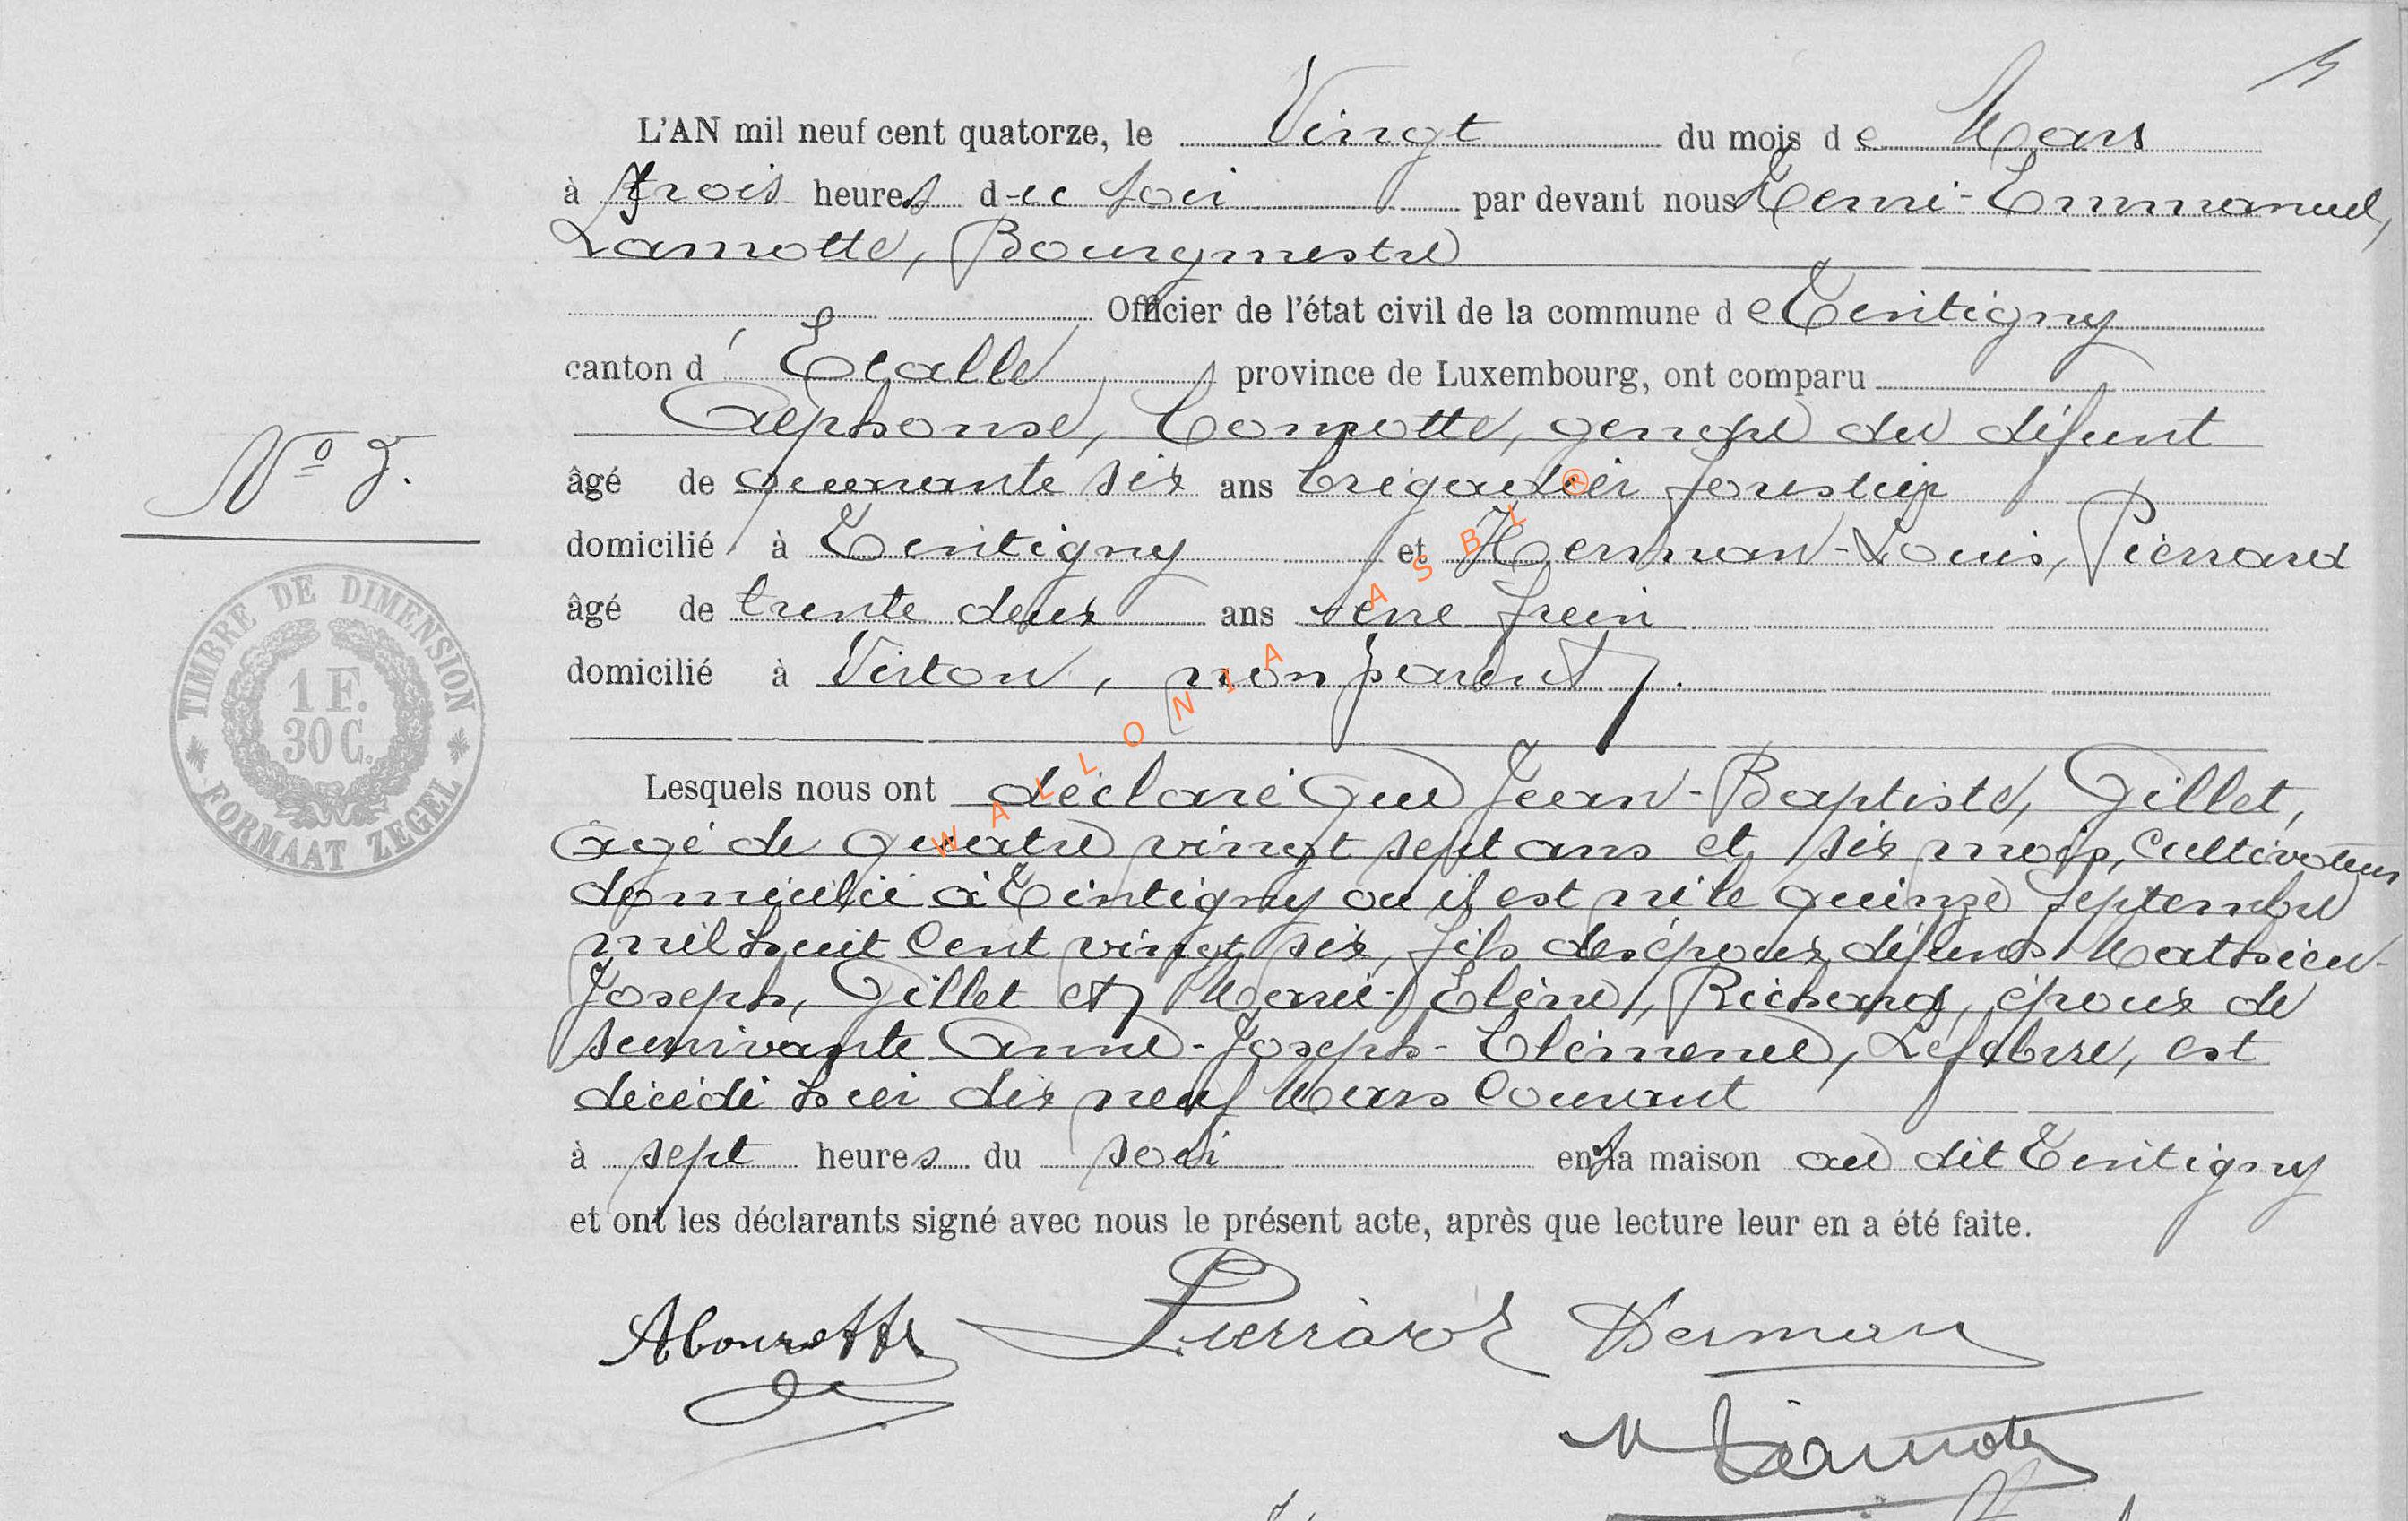 5
L'AN mil neuf cent quatorze, le Vingt du mois de Mars
à trois heures du soir par devant nous Henri-Emmanuel,
Lamotte, Bourgmestre
Officier de l'état civil de la commune de Tintigny
canton d'Etalle province de Luxembourg, ont comparu
Alphonse, Comotte, gendre du défunt
âgé de quarante six ans brigadier forestier
domicilié à Tintigny et Herman-Louis, Pierrard
âgé de trente deux ans serre frein
domicilié à Virton, non parent.
Lesquels nous ont déclaré que Jean-Baptiste, Gillet,
agé de quatre vingt sept ans et six mois, cultivateur
domicilié à Tintigny où il est né le quinze septembre
mil huit cent vingt six, fils des époux défunts Mathieu-
Joseph, Gillet et Marie-Elène, Richard, époux de
survivante Anne-Joseph-Clémence, Lefebvre, est
décédé hier dix neuf Mars courant
à sept heures du soir en sa maison au dit Tintigny
et ont les déclarants signé avec nous le présent acte, après que lecture leur en a été faite.
Pierrard Herman
Lamotte
TIMBRE DE DIMENSION
1 F.
30 C.
FORMAAT ZEGEL
WALLONIA ASBL ®